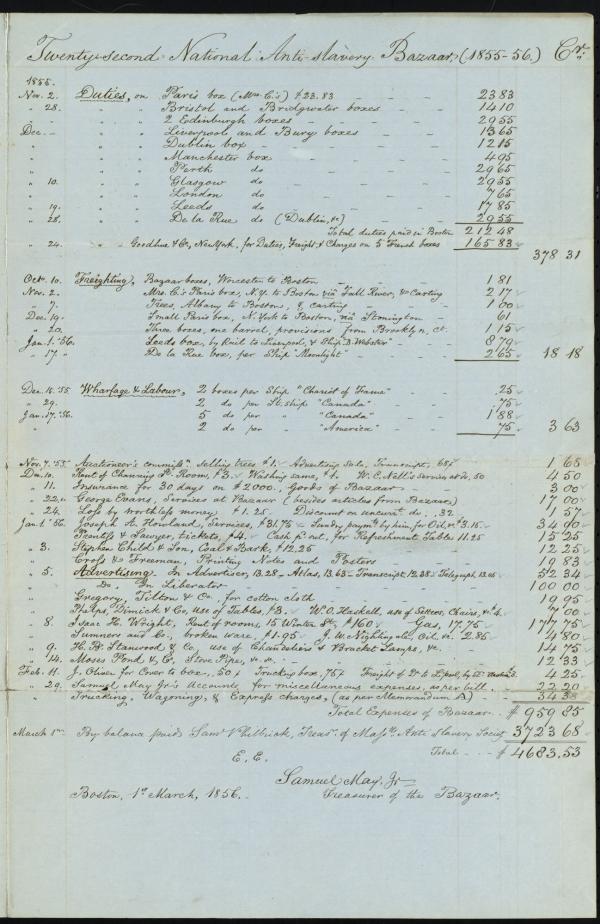 Twenty-second National Anti-slavery Bazaar, (1855-56.) Cr.
1855.
Nov. 2. Duties, on Paris box (Mrs. C.'s) $23.83 23 83
" 28. " " Bristol and Bridgwater boxes 14 10
" " " 2 Edinburgh boxes 29 55
Dec. " " Liverpool and Bury boxes 13 65
" " " Dublin box 12 15
" " " Manchester box 4 95
" " " Perth do 29 65
" 10. " " Glasgow do 29 55
" " " London do 7 65
" 19. " " Leeds do 17 85
" 28. " " De la Rue do (Dublin, &c) 29 55
Total duties paid in Boston 212 48
" 24. " " Goodhue & Co, New York, for Duties, Freight & Charges on 5 French boxes 165 83
378 31
Oct. 10. Freighting, Bazaar boxes, Worcester to Boston 1 81
Nov. 2. " Mrs. C.'s Paris box, N.Y. to Boston via Fall River, & Carting 2 17
" 7. " Trees, Albany to Boston, & carting 1 00
Dec. 19. " Small Paris box, N. York to Boston, via Stonington 61
" 20. " Three boxes, one barrel, provisions from Brooklyn, Ct. 1 15
Jan. 1. '56. " Leeds box, by Rail to Liverpool, & Ship D. Webster 8 79
" 17 " " De la Rue box, per Ship "Moonlight" 2 65 18 18
Dec. 18. '55. Wharfage & Labour, 2 boxes per Ship "Chariot of Fame" 25
" 29. " 2 do per St. ship "Canada" 75
Jan. 17. '56. " 5 do per " "Canada" 1 88
" " 2 do per " "America" 75 3 63
Nov. 7. '55. Auctioneer's commissn. Selling trees $1. Advertising Sale, Transcript, 68¢ 1 68
Dec. 10. Rent of Channing St. Room, $3. Washing same, $1. W. C. Nell's Services at do, 50 4 50
" 11. Insurance for 30 days on $2000. Goods of Bazaar 3 00
" 22. George Evans, Services at Bazaar (besides articles from Bazaar) 17 00
" 24. Loss by worthless money $1.25. Discount on uncurrt. do. .32 1 57
Jan. 1. '56. Joseph A. Howland, Services, $31.75 Sundry paymts by him, for Oil, &c 3.15 34 90
" Prentiss & Sawyer, tickets, $4. Cash pd. out, for Refreshment Tables 11.25 15 25
" 3. Stephen Child & Son, Coal & Bark, $12.25 12 25
" Cross & Freeman, Printing Notes and Posters 19 83
" 5. Advertising. In Advertiser, 13.28 Atlas, 13.63 Transcript, 12.38 Telegraph 13.05 52 34
" Do. In Liberator 100 00
" Gregory, Tilton & Co, for cotton cloth 19 95
" Phelps, Kimick & Co, use of Tables, $3. W. O. Haskell, use of Settees, Chairs, &c 4. 7 00
" 8. Isaac H. Wright, Rent of rooms, 15 Winter St, $160 Gas, 17.75 177 75
" Sumners and Co., broken ware, $1.95 J. W. Nightingale, Oil, &c. 2.85 4 80
" 9. H. B. Stanwood & Co. use of Chandeliers & Bracket Lamps, &c. 14 75
" 14. Moses Pond & Co, Stove Pipe, &c. &c. 12 33
Feb. 11. J. Oliver for Cover to box, .50 ¢ Trucking box, 75 ¢ Freight of Do to L'pool, by 4 25
" 29. Samuel May Jr's Accounts for miscellaneous expenses, as per bill 22 20
" Trucking, Wagoning, & Express charges, (as per Memorandum A)
Total Expenses of Bazaar $ 959 85
March 1st. By balance paid Saml Philbrick, Treas. of Masstts Anti Slavery Society 3723 68
Total $ 4683.53
E. E.
Samuel May, Jr
Boston, 1st March, 1856. Treasurer of the Bazaar.